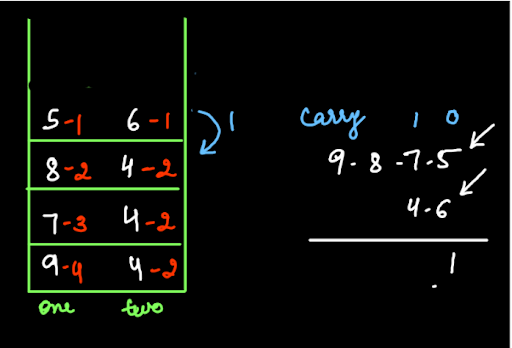 5-1 6-1 1
8-2 4-2
7-3 4-2
9-4 4-2
one two
Carry 1 0
9-8-7-5
4-6
1